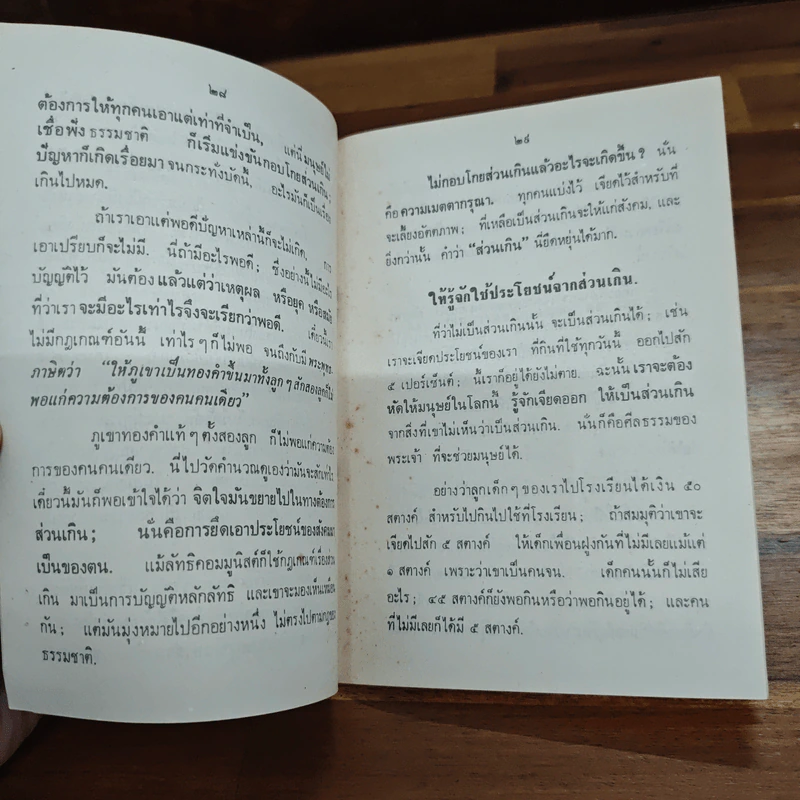 ๒๘
ต้องการให้ทุกคนเอาแต่เท่าที่จำเป็น, แต่นี่มนุษย์ไม่
เชื่อฟังธรรมชาติ ก็เริ่มแข่งขันกอบโกยส่วนเกิน;
ปัญหาก็เกิดเรื่อยมา จนกระทั่งบัดนี้, อะไรมันก็เป็น
เกินไปหมด.
ถ้าเราเอาแต่พอดีปัญหาเหล่านี้ก็จะไม่เกิด, การ
เอาเปรียบก็จะไม่มี. นี่ถ้ามีอะไรพอดี; ซึ่งอย่างนี้ไม่มีอะไร
บัญญัติไว้ มันต้องแล้วแต่ว่าเหตุผล หรือยุค
ที่ว่าเราจะมีอะไรเท่าไรจึงจะเรียกว่าพอดี. เดี๋ยวนี้
ไม่มีกฎเกณฑ์อันนี้ เท่าไรๆก็ไม่พอ จนถึงกับมีพระพุทธ
ภาษิตว่า “ให้ภูเขาเป็นทองคำขึ้นมาทั้งลูกๆสักสองลูกก็ไม่
พอแก่ความต้องการของคนคนเดียว”
ภูเขาทองคำแท้ๆตั้งสองลูก ก็ไม่พอแก่ความต้อง
การของคนคนเดียว. นี่ไปวัดคำนวณดูเองว่ามันจะสักเท่าไร
เดี๋ยวนี้มันก็พอเข้าใจได้ว่า จิตใจมันขยายไปในทางต้องการ
ส่วนเกิน; นั่นคือการยึดเอาประโยชน์ของสังคมมา
เป็นของตน. แม้ลัทธิคอมมูนิสต์ก็ใช้กฎเกณฑ์เรื่องส่วน
เกิน มาเป็นการบัญญัติหลักลัทธิ และเขาจะมองเห็นเหมือน
กัน; แต่มันมุ่งหมายไปอีกอย่างหนึ่ง ไม่ตรงไปตามกฎของ
ธรรมชาติ.
๒๙
ไม่กอบโกยส่วนเกินแล้วอะไรจะเกิดขึ้น? นั่น
คือความเมตตากรุณา. ทุกคนแบ่งไว้ เจียดไว้สำหรับที่
จะเลี้ยงอัตตภาพ; ที่เหลือเป็นส่วนเกินจะให้แก่สังคม, และ
ยิ่งกว่านั้น คำว่า “ส่วนเกิน” นี้ยืดหยุ่นได้มาก.
ให้รู้จักใช้ประโยชน์จากส่วนเกิน.
ที่ว่าไม่เป็นส่วนเกินนั้น จะเป็นส่วนเกินได้; เช่น
เราจะเจียดประโยชน์ของเรา ที่กินที่ใช้ทุกวันนี้ ออกไปสัก
๕ เปอร์เซ็นต์; นี้เราก็อยู่ได้ยังไม่ตาย. ฉะนั้น เราจะต้อง
หัดให้มนุษย์ในโลกนี้ รู้จักเจียดออก ให้เป็นส่วนเกิน
จากสิ่งที่เขาไม่เห็นว่าเป็นส่วนเกิน. นั่นก็คือศีลธรรมของ
พระเจ้า ที่จะช่วยมนุษย์ได้.
อย่างว่าลูกเด็กๆของเราไปโรงเรียนได้เงิน ๕๐
สตางค์ สำหรับไปกินไปใช้ที่โรงเรียน; ถ้าสมมุติว่าเขาจะ
เจียดไปสัก ๕ สตางค์ ให้เด็กเพื่อนฝูงกันที่ไม่มีเลยแม้แต่
๑ สตางค์ เพราะว่าเขาเป็นคนจน. เด็กคนนั้นก็ไม่เสีย
อะไร; ๔๕ สตางค์ก็ยังพอกินหรือว่าพอกินอยู่ได้; และคน
ที่ไม่มีเลยก็ได้มี ๕ สตางค์.